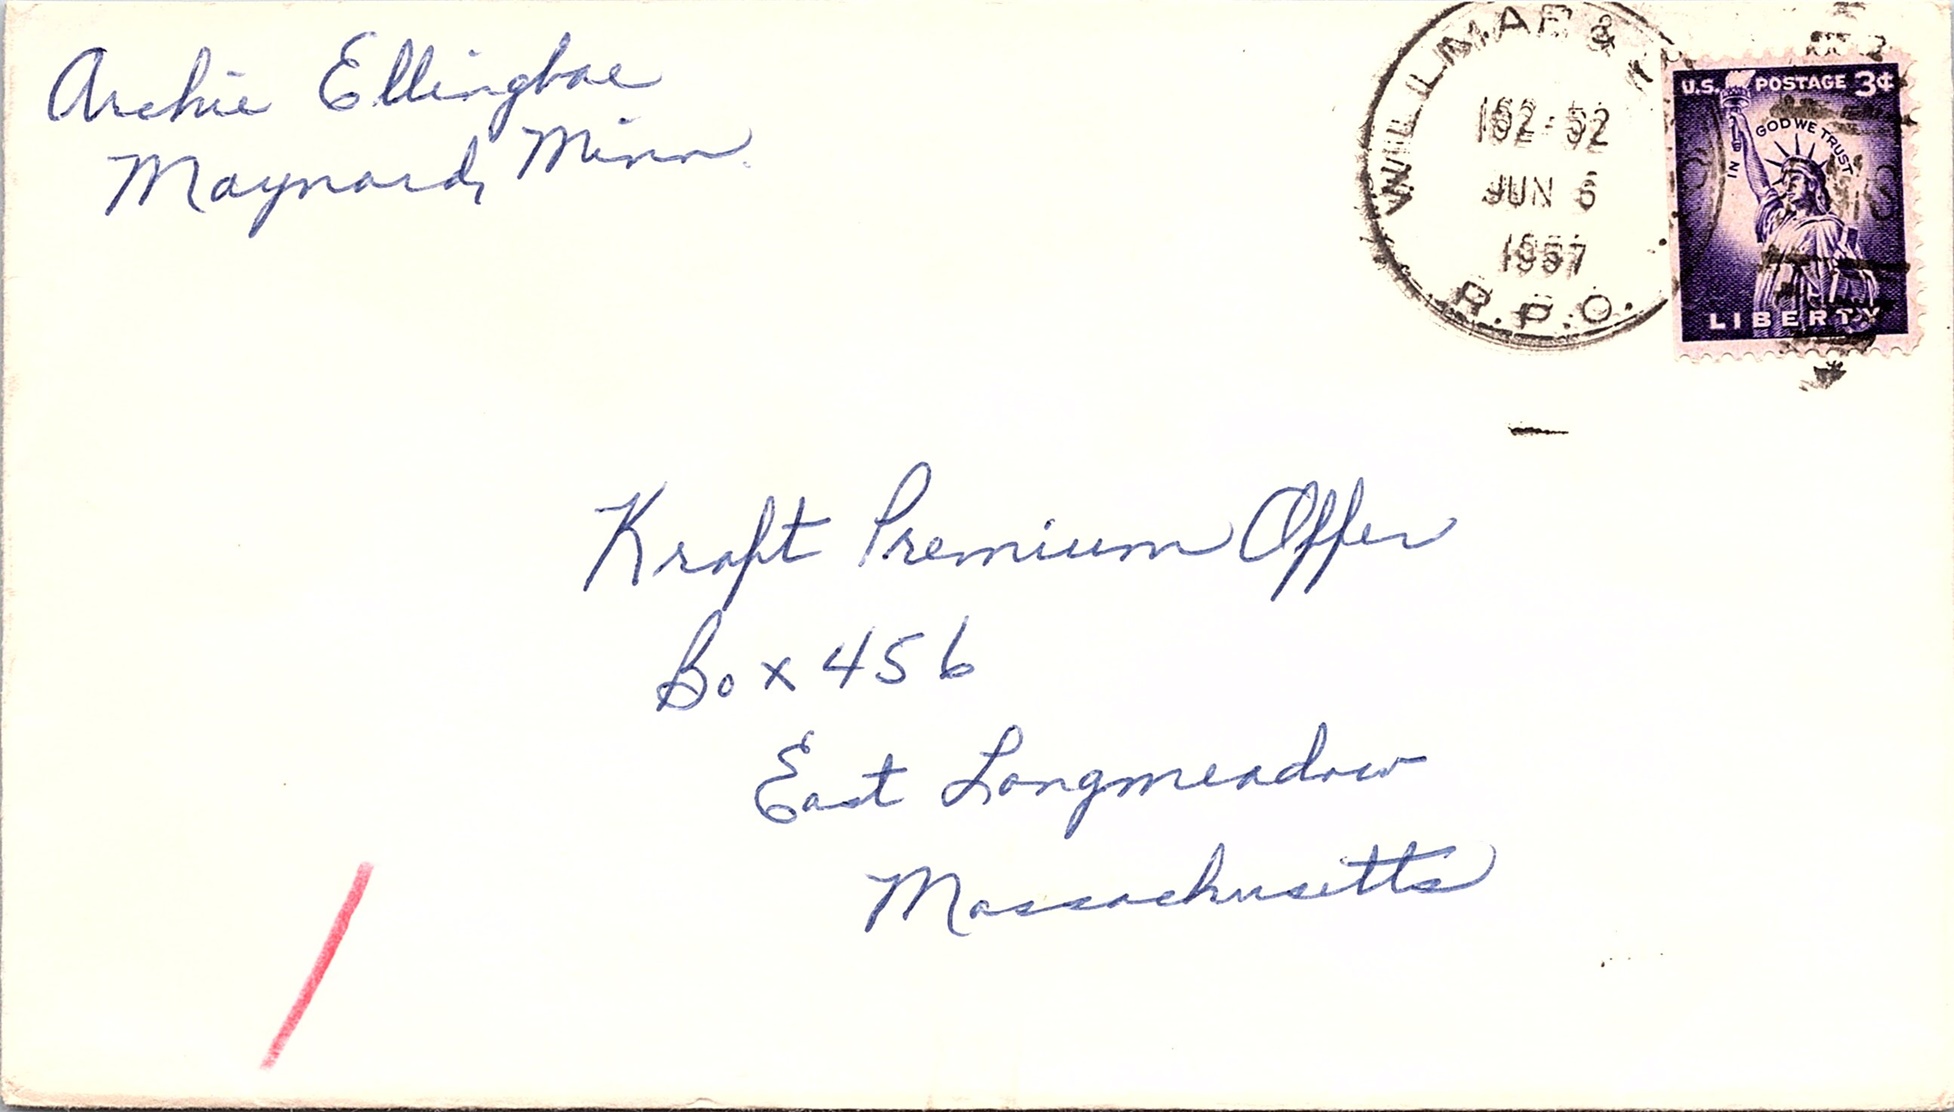 Archie Ellingboe
Maynard, Minn
WILLMAR &
162-52
JUN 6
1957
R.P.O.
U.S. POSTAGE 3¢
IN GOD WE TRUST
LIBERTY
Kraft Premium Offer
Box 456
East Longmeadow
Massachusetts